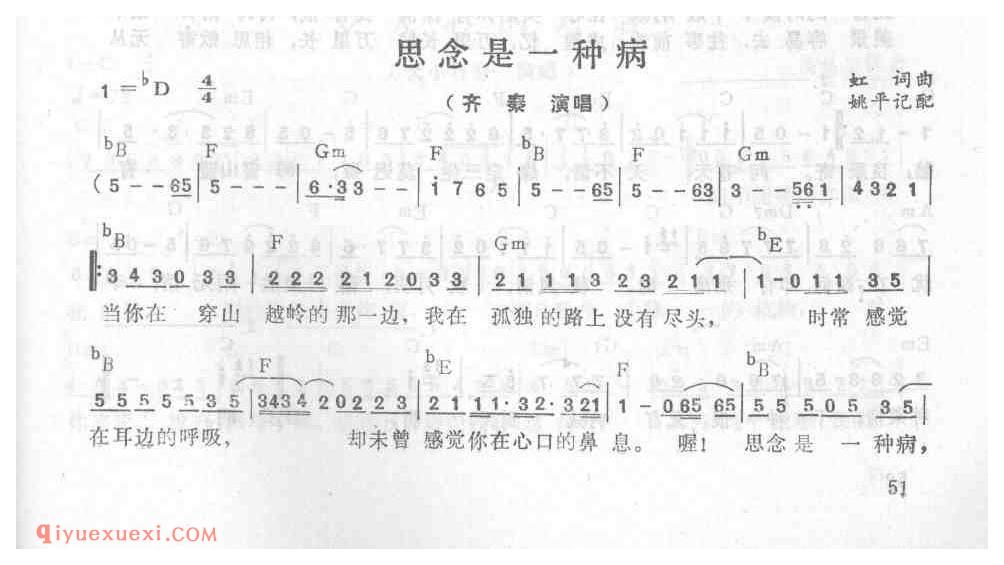 思念是一种病
1=♭D 4/4
（齐秦 演唱）
虹 词曲
姚平记配
♭B F Gm F ♭B F Gm
（5 - - 65 | 5 - - - | 6·3 3 - - | i 7 6 5 | 5 - - 65 | 5 - - 63 | 3 - - 561 | 4 3 2 1
♭B F Gm ♭E
3 4 3 0 3 3 | 2 2 2 2 1 2 0 3 3 | 2 1 1 1 1 3 2 3 2 1 1 | 1 - 0 1 1 3 5 |
当你在 穿山 越岭的那一边，我在 孤独的路上没有尽头， 时常 感觉
♭B F ♭E F ♭B
5 5 5 5 5 3 5 | 3 4 3 4 2 0 2 2 3 | 2 1 1 1·3 2·3 2 1 | 1 - 0 6 5 6 5 | 5 5 5 0 5 3 5 |
在耳边的呼吸， 却未曾 感觉你在心口的鼻 息。 喔！ 思念是 一种病，
51
qiyuexuexi.com